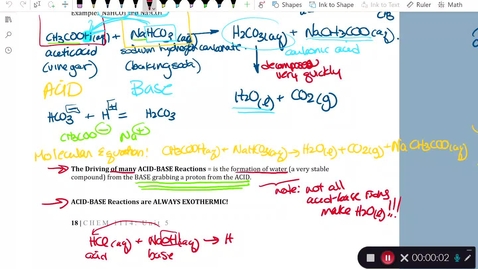 Example: NaHCO3 and NaHCO3
Ink to Shape
Ink to Text
CH3COOH(aq) + NaHCO3(aq) → H2CO3(aq) + NaCH3COO(aq).
acetic acid sodium hydrogen carbonate carbonic acid
(vinegar) (baking soda) decomposes
very quickly
ACID Base H2O(l) + CO2(g)
HCO3⁻ + H⁺ = H2CO3
CH3COO⁻ Na⁺
Molecular Equation: CH3COOH(aq) + NaHCO3(aq) → H2O(l) + CO2(g) + NaCH3COO(aq)
The Driving of many ACID-BASE Reactions = is the formation of water (a very stable
compound) from the BASE grabbing a proton from the ACID.
note: not all
acid-base rxns
make H2O(l)!!!
ACID-BASE Reactions are ALWAYS EXOTHERMIC!
18 | CHEM 111: Unit 5
HCl(aq) + NaOH(aq) → H
acid base
00:00:02